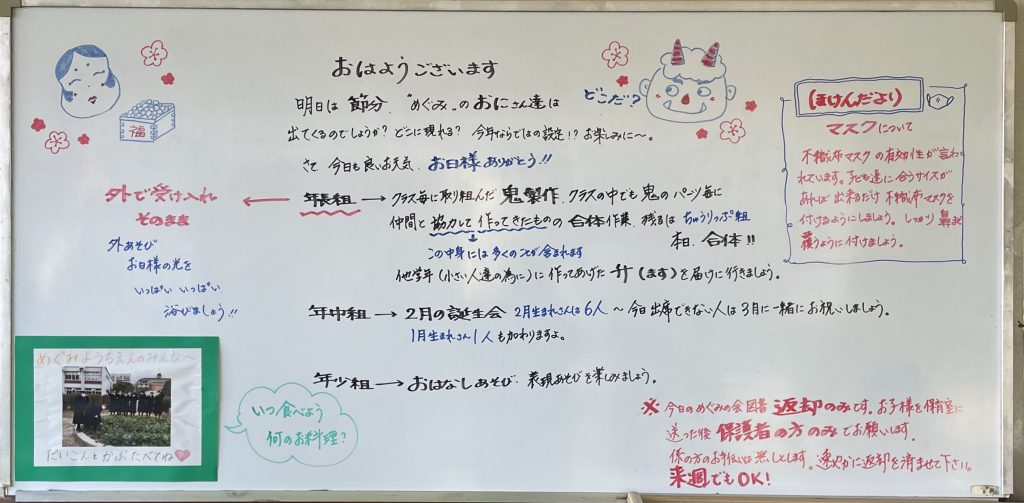 おはようございます
明日は 節分 “めぐみ”の おにさん達は
どこだ?
出てくるのでしょうか? どこに現れる? 今年ならではの設定!? お楽しみに〜。
さて 今日も良いお天気 お日様ありがとう!!
福
外で受け入れ
そのまま
外あそび
お日様の光を
いっぱい いっぱい
浴びましょう!!
年長組 → クラス毎に取り組んだ 鬼製作、クラスの中でも鬼のパーツ毎に
仲間と協力して作ってきたものの合体作業、残るはちゅうりっぷ組
本日、合体!!
この中身には多くのことが含まれます
他学年(小さい人達の為に)に作ってあげた 升(ます)を届けに行きましょう。
年中組 → 2月の誕生会 2月生まれさんは6人 〜 今日出席できない人は3月に一緒にお祝いしましょう。
1月生まれさん1人も加わりますよ。
年少組 → おはなしあそび、表現あそびを楽しみましょう。
ほけんだより
マスクについて
不織布マスクの有効性が言わ
れています。子ども達に合うサイズが
あれば出来るだけ不織布マスクを
付けるようにしましょう。しっかり鼻まで
覆うように付けましょう。
めぐみようちえんのみんなへ
だいこんとかぶたべてね
いつ食べよう
何のお料理?
※ 今日のめぐみの会図書 返却のみです。お子様を保育室に
送った後 保護者の方のみでお願いします。
係の方のお手伝いは無しとします。速やかに返却を済ませて下さい。
来週でもOK!